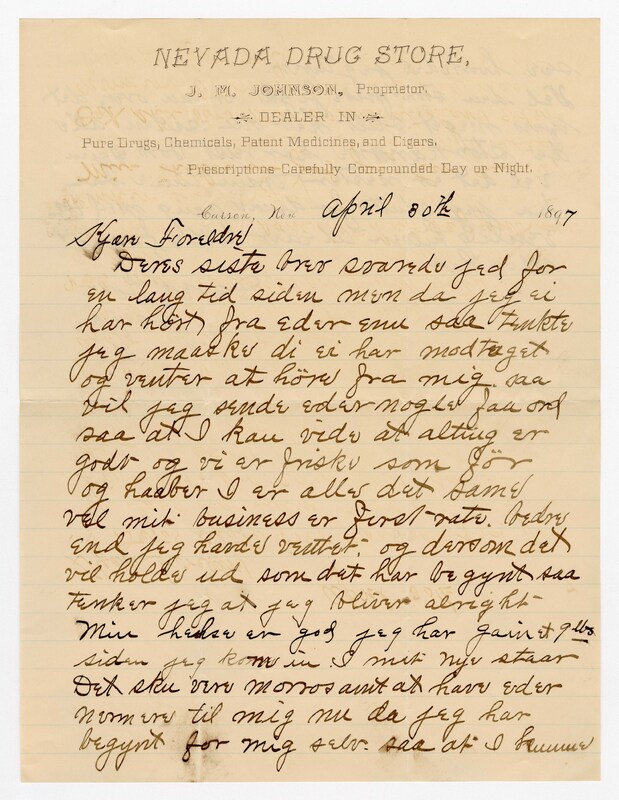 NEVADA DRUG STORE,
J. M. JOHNSON, Proprietor.
DEALER IN
Pure Drugs, Chemicals, Patent Medicines, and Cigars.
Prescriptions Carefully Compounded Day or Night.
Carson, Nev. April 30th 1897
Kjære Foreldre
Deres siste brev svarede jed for
en lang tid siden men da jeg ei
har hört fra eder enu saa tenkte
jeg maaske di ei har modtaget
og venter at höre fra mig. saa
vil jeg sende eder nogle faa ord
saa at I kan vide at alting er
godt og vi er friske som för
og haaber I er alle det same
vel mit business er first rate. bedre
end jeg havde ventet, og dersom det
vil holde ud som det har begynt saa
tenker jeg at jeg bliver alright
Min helse er god jeg har gainet 9 lbs
siden jeg kom in I mit nye staar
Det sku vere morrosamt at have eder
nermere til mig nu da jeg har
begynt for mig selv. saa at I kunne